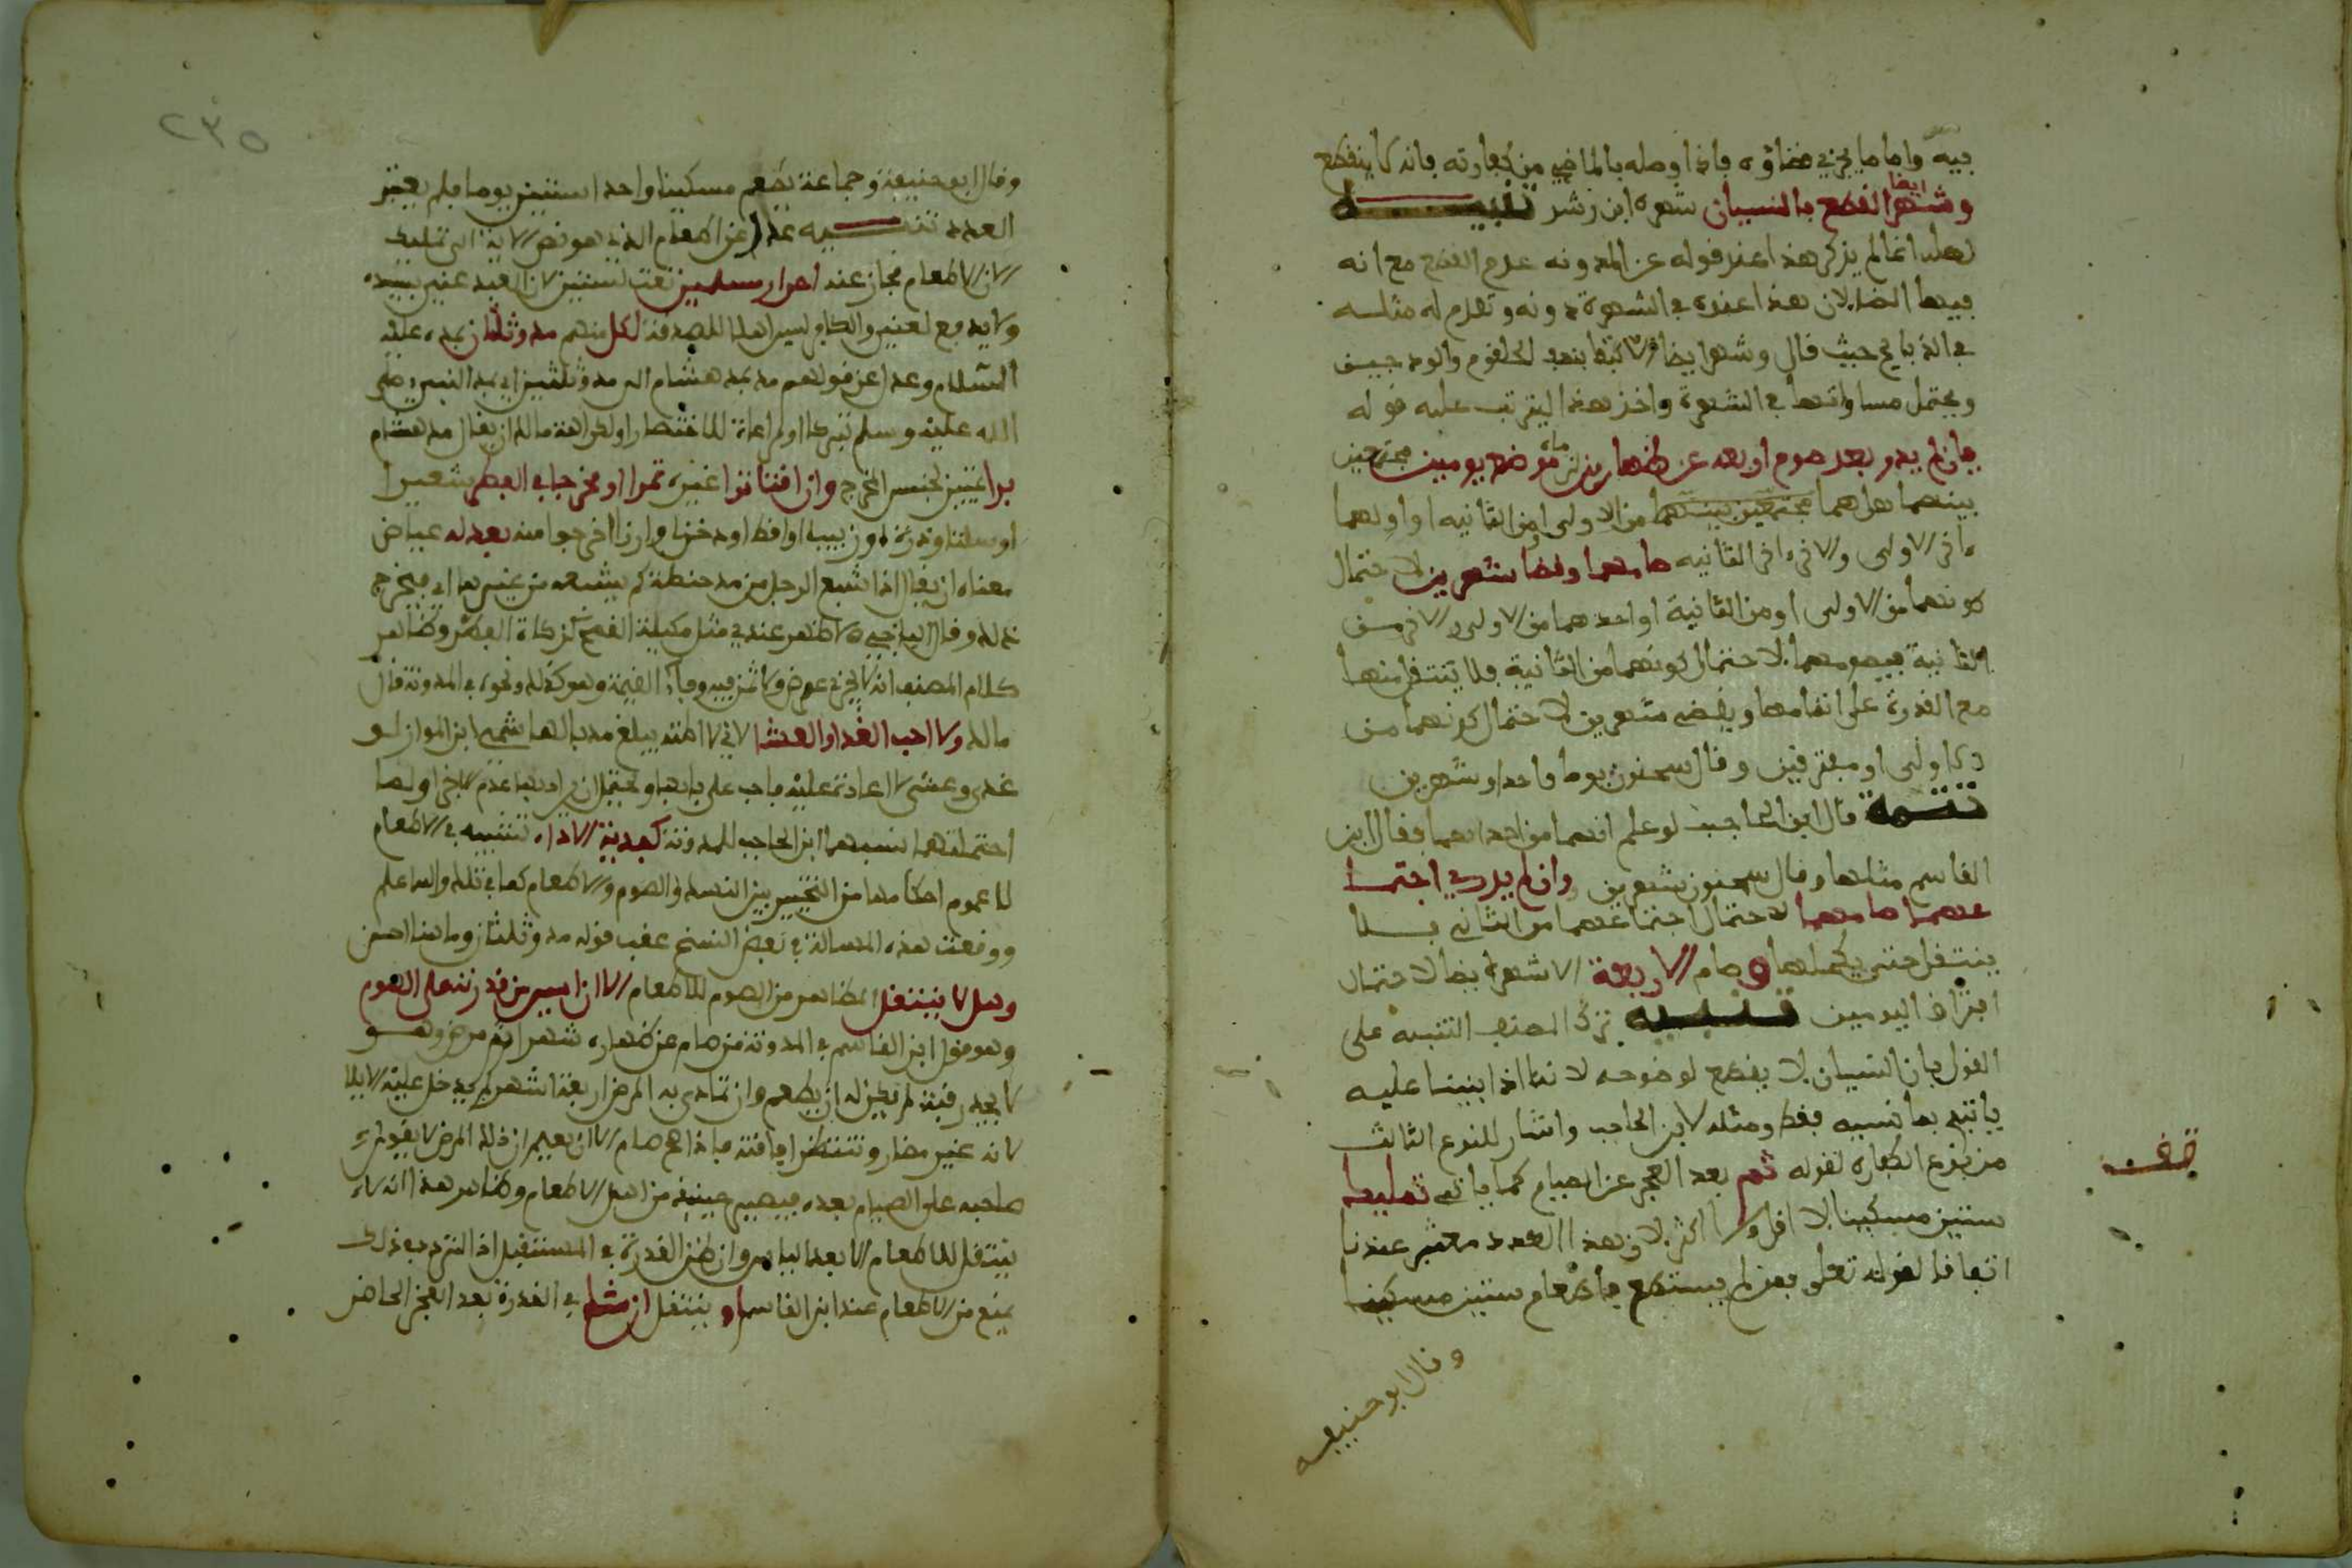 فيه واما ما يجزي قضاؤه فاذا وصله بالماضي من كفارته فانه لا ينقطع
وشهر ايضا القطع بالنسيان شهره ابن رشد تنبيه
لعله انما لم يذكر هذا عند قوله عن المدونة عدم القطع مع انه
فيها ايضا لان هذا عنده في الشهرة دونه وتقدم له مثله
في الذبايح حيث قال وشهر ايضا الاكتفا بنصف الحلقوم والودجين
ويحتمل مساواتهما في الشهرة واخر هذا ليترتب عليه قوله
فان لم يدر بعد صوم اربعة عن ظهارين موضع يومين مجتمعين
بينهما هل هما مجتمعين بينهما من الاولى او من الثانيه او اولهما
ءاخر الاولى والاخر اخر الثانيه صامهما وقضا شهرين لاحتمال
كونهما من الاولى او من الثانية او احدهما من الاولى والاخر من
الثانية فيصومهما لاحتمال كونهما من الثانية فلا ينتقل منها
مع القدرة على اتمامها ويقضي شهرين لاحتمال كونهما من
الاولى او مفترقين وقال سحنون يوما واحدا وشهرين
تتمة قال ابن الحاجب لو علم انهما من احداهما فقال ابن
القاسم مثلها وقال سحنون شهرين وان لم يدر اجتماعهما
صامهما لاحتمال اجتماعهما من الثاني فلا
ينتقل حتى يكملها وصام الاربعة الاشهر ايضا لاحتمال
افتراق اليومين تنبيه ترك المصنف التنبيه على
القول بان النسيان لا يقطع لوضوحه لاننا اذا بنينا عليه
ياتي بما نسيه فقط ومثله لابن الحاجب واشار للنوع الثالث
من نوع الكفاره لقوله ثم بعد العجز عن الصيام كما ياتي تمليك
ستين مسكينا لا اقل ولا اكثر لان هذا العدد معتبر عندنا
اتفاقا لقوله تعلى فمن لم يستطع فاطعام ستين مسكينا
وقال ابو حنيفه
قف
٢٣٥
وقال ابو حنيفة وجماعة يطعم مسكينا واحدا ستين يوما فلم يعتبر
العدد تنبيه عدل عن اطعام الذي هو نص الاية الى تمليك
لان الاطعام مجاز عنه احرار مسلمين نعت لستين لان العبد غني بسيده
ولا يدفع لغني والكافر ليس اهلا للصدقة لكل منهم مد وثلثان بمده عليه
السلام وعدل عن قولهم مد بمد هشام الى مد وثلثين اي بمد النبي صلى
الله عليه وسلم تبركا او مراعاة للاختصار او لكراهة مالك ان يقال مد هشام
برا تمييز لجنس المخرج وان اقتاتوا غيره تمرا او مخرجا في الفطر شعيرا
او سلتا وذرة او زبيبا او اقطا او دخنا وارزا اخرجوا منه فعدله عياض
معناه ان يقال اذا شبع الرجل من مد حنطة كم يشبعه من غيرها اي فيخرج
ذلك وقال الباجي الاظهر عندي مثل مكيلة القمح كزكاة الفطر وظاهر
كلام المصنف انه لا يجزي عرض ولا ثمن فيه وفا القيمة وهو كذلك ونحوه في المدونة قال
مالك ولا احب الغدا والعشا لاني لا اظنه يبلغ مدا بالهاشمي ابن المواز لو
غدى وعشى لا اعادة عليه فاحب على بابها ويحتمل ان يراد بها عدم الاجزا ولما
احتملتهما نسبهما ابن الحاجب للمدونة كفدية الاذا تنبيه في الاطعام
للعموم احكامها من التخيير بين النسك والصوم والاطعام كما في تلك والله اعلم
ووقعت هذه المسالة في بعض النسخ عقب قوله مد وثلثان وما هنا احسن
وهل لا ينتقل المظاهر من الصوم للاطعام الا ان ايس من قدرته على الصوم
وهو قول ابن القاسم في المدونة من صام عن ظهاره شهرا ثم مرض وهو
لا يجد رقبة لم يجز له ان يطعم وان تمادى به المرض اربعة اشهر لم يدخل عليه الايلا
لانه غير مضار وتنتظر افاقته فاذا صح صام الا ان يعلم ان ذلك المرض لا يقوى
صاحبه على الصيام بعده فيصير حينئذ من اهل الاطعام وظاهر هذا انه لا
ينتقل للاطعام الا بعد الياس وان ظن القدرة في المستقبل اذ التردد في ذلك
يمنع من الاطعام عند ابن القاسم او ينتقل ان شك في القدرة بعد العجز الحاضر